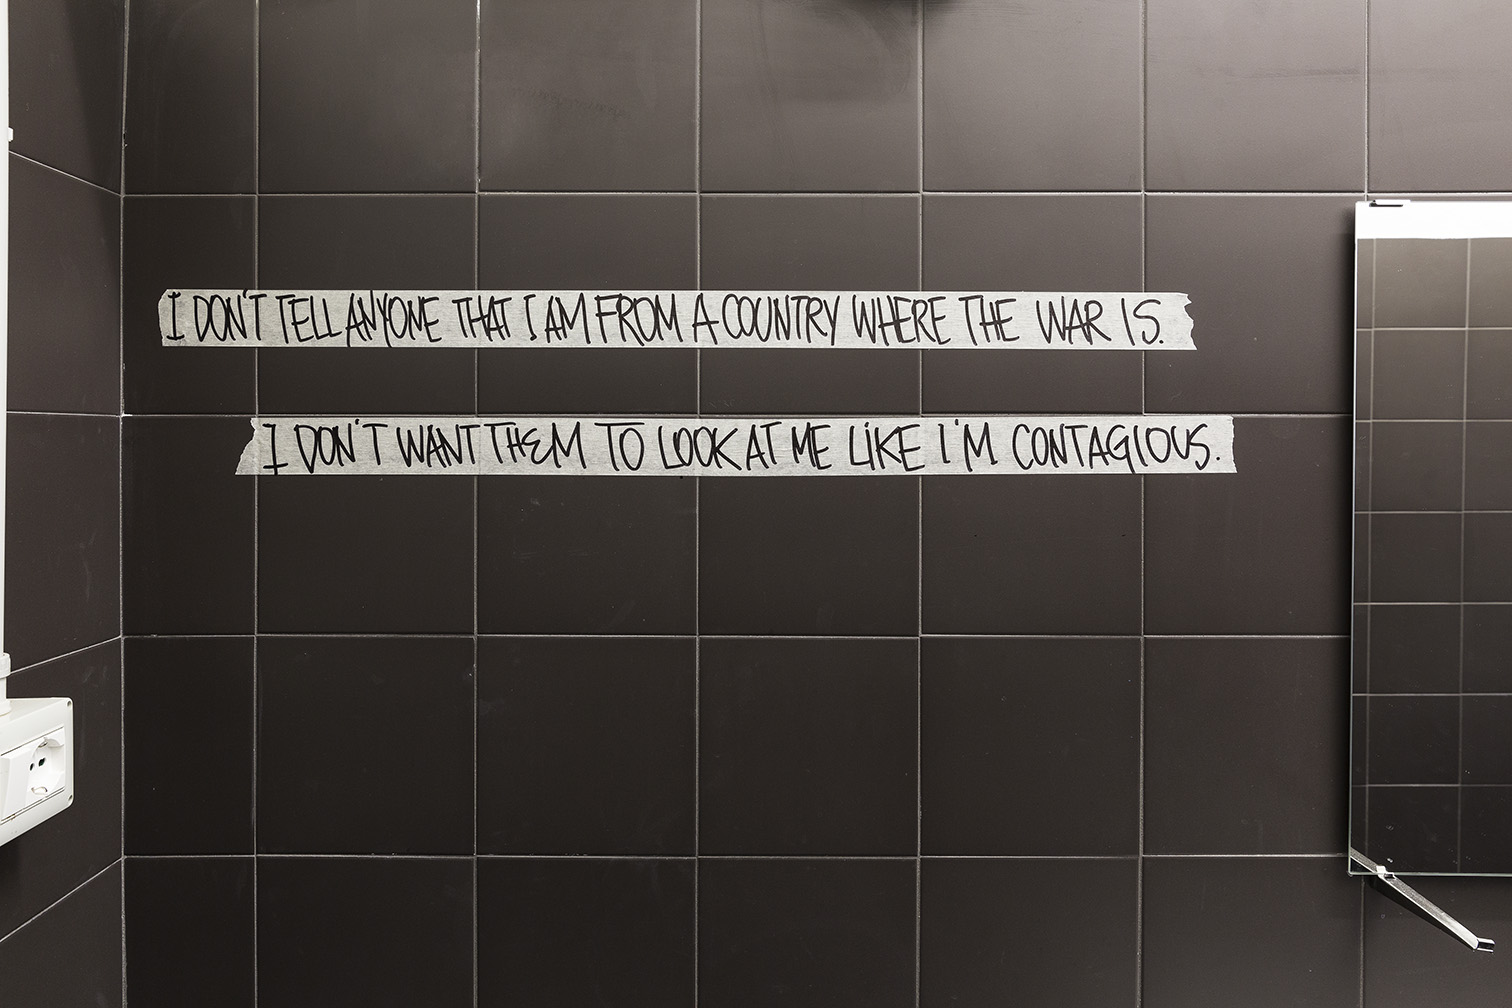 I DON'T TELL ANYONE THAT I AM FROM A COUNTRY WHERE THE WAR IS.
I DON'T WANT THEM TO LOOK AT ME LIKE I'M CONTAGIOUS.